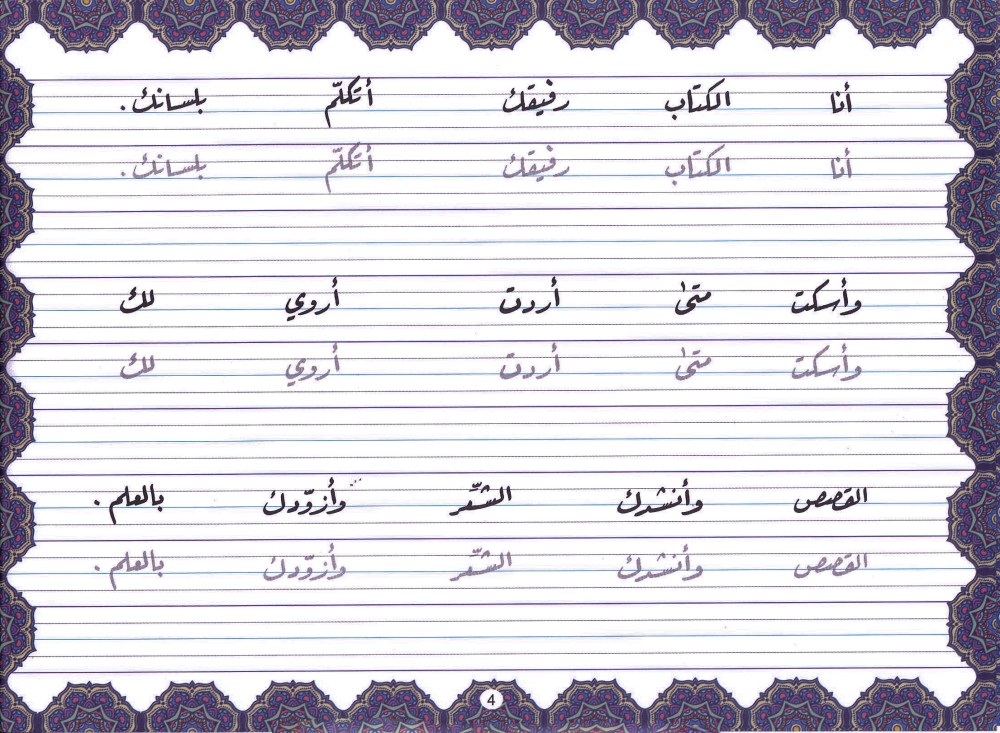 أنا الكتاب رفيقك أتكلّم بلسانك.
أنا الكتاب رفيقك أتكلّم بلسانك.
وأسكت متى أردت أروي لك
وأسكت متى أردت أروي لك
القصص وأنشدك الشّعر وأزوّدك بالعلم.
القصص وأنشدك الشّعر وأزوّدك بالعلم.
4